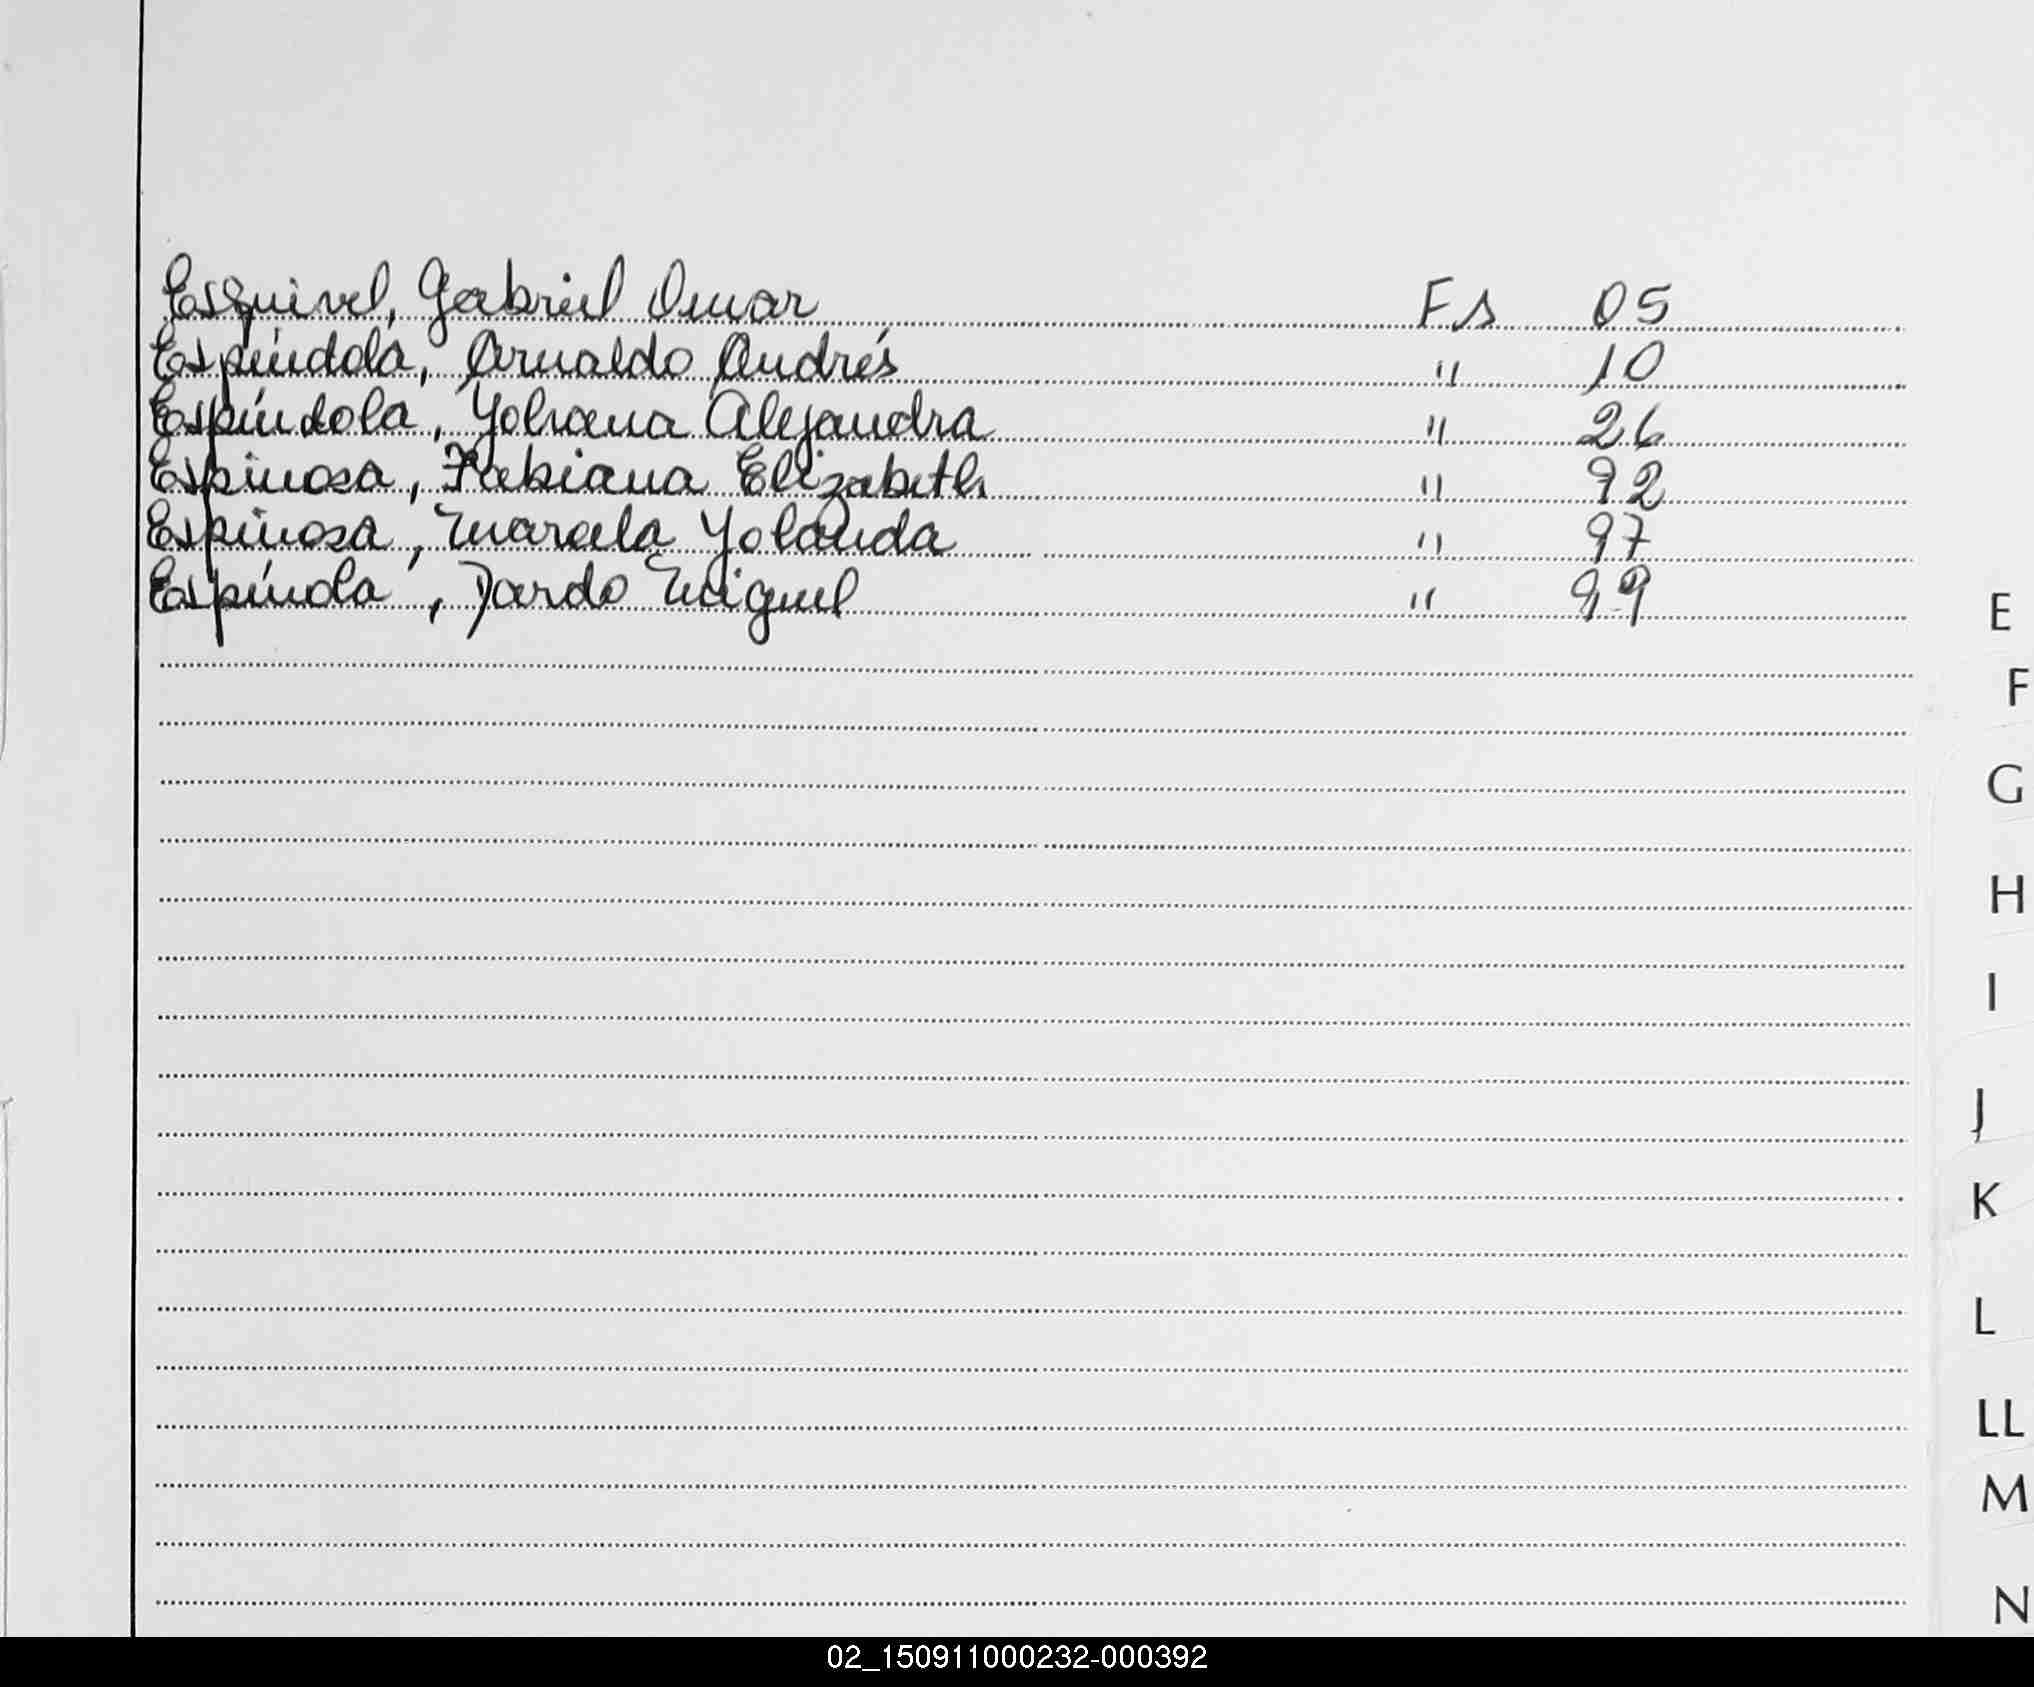 Esquivel, Gabriel Omar Fs 05
Espíndola, Arnaldo Andrés " 10
Espíndola, Yohana Alejandra " 26
Espinosa, Fabiana Elizabeth " 92
Espinosa, Marcela Yolanda " 97
Espínola, Dardo Miguel " 99
E
F
G
H
I
J
K
L
LL
M
N
02_150911000232-000392